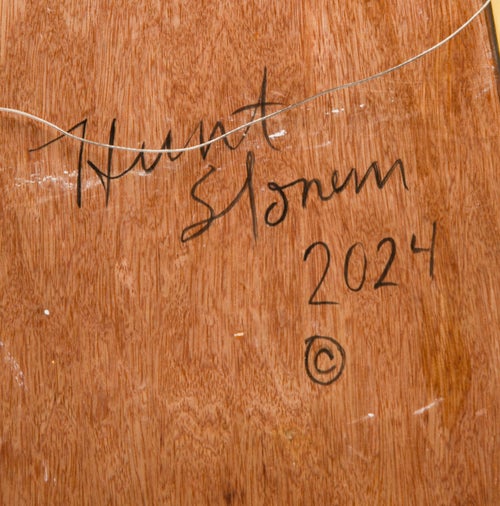 Hunt
Slonem
2024
©